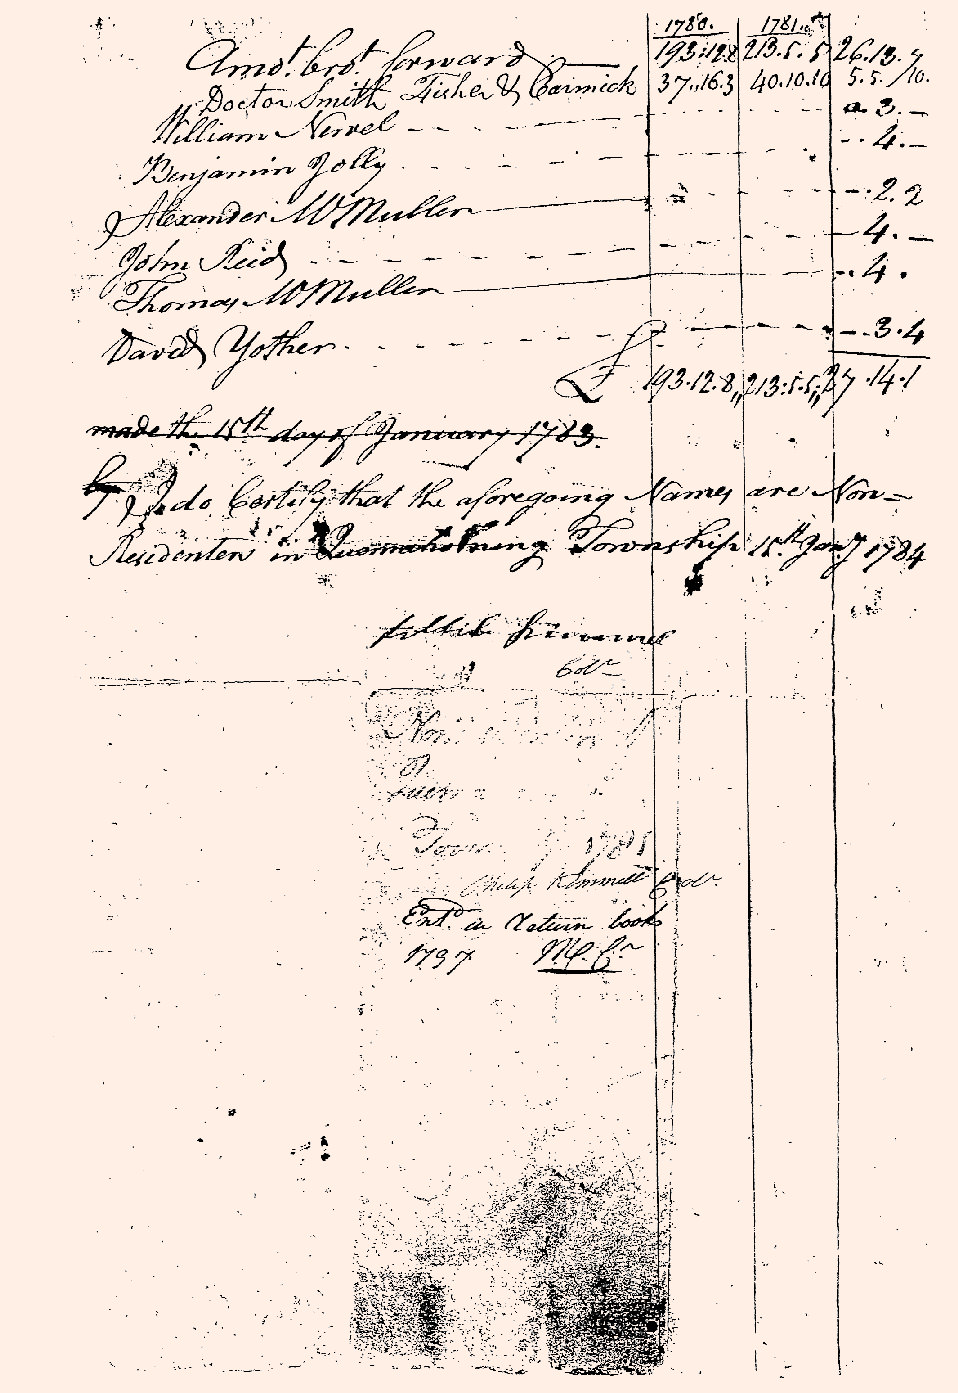 1780. 1781.
Amo.t bro.t forward 193.12.8 213.5.5 26.13.7
Doctor Smith Fisher & Carmick 37.16.3 40.10.10 5.5.10.
William Nervel - - - 3.-
Benjamin Jolly - - - 4.-
Alexander McMullen - 2.2
John Reid - - - 4.-
Thomas McMullen - 4.
David Yother - - - 3.4
£ 193.12.8 213.5.5 27.14.1
made the 15th day of January 1783.
by I do Certify that the aforegoing Names are Non=
Residenters in Quemahoning Township 15th Jany 1784
Coll.r
1781
Philip Kimmell Coll.r
Ent.d in Return book
1797 M. C.r